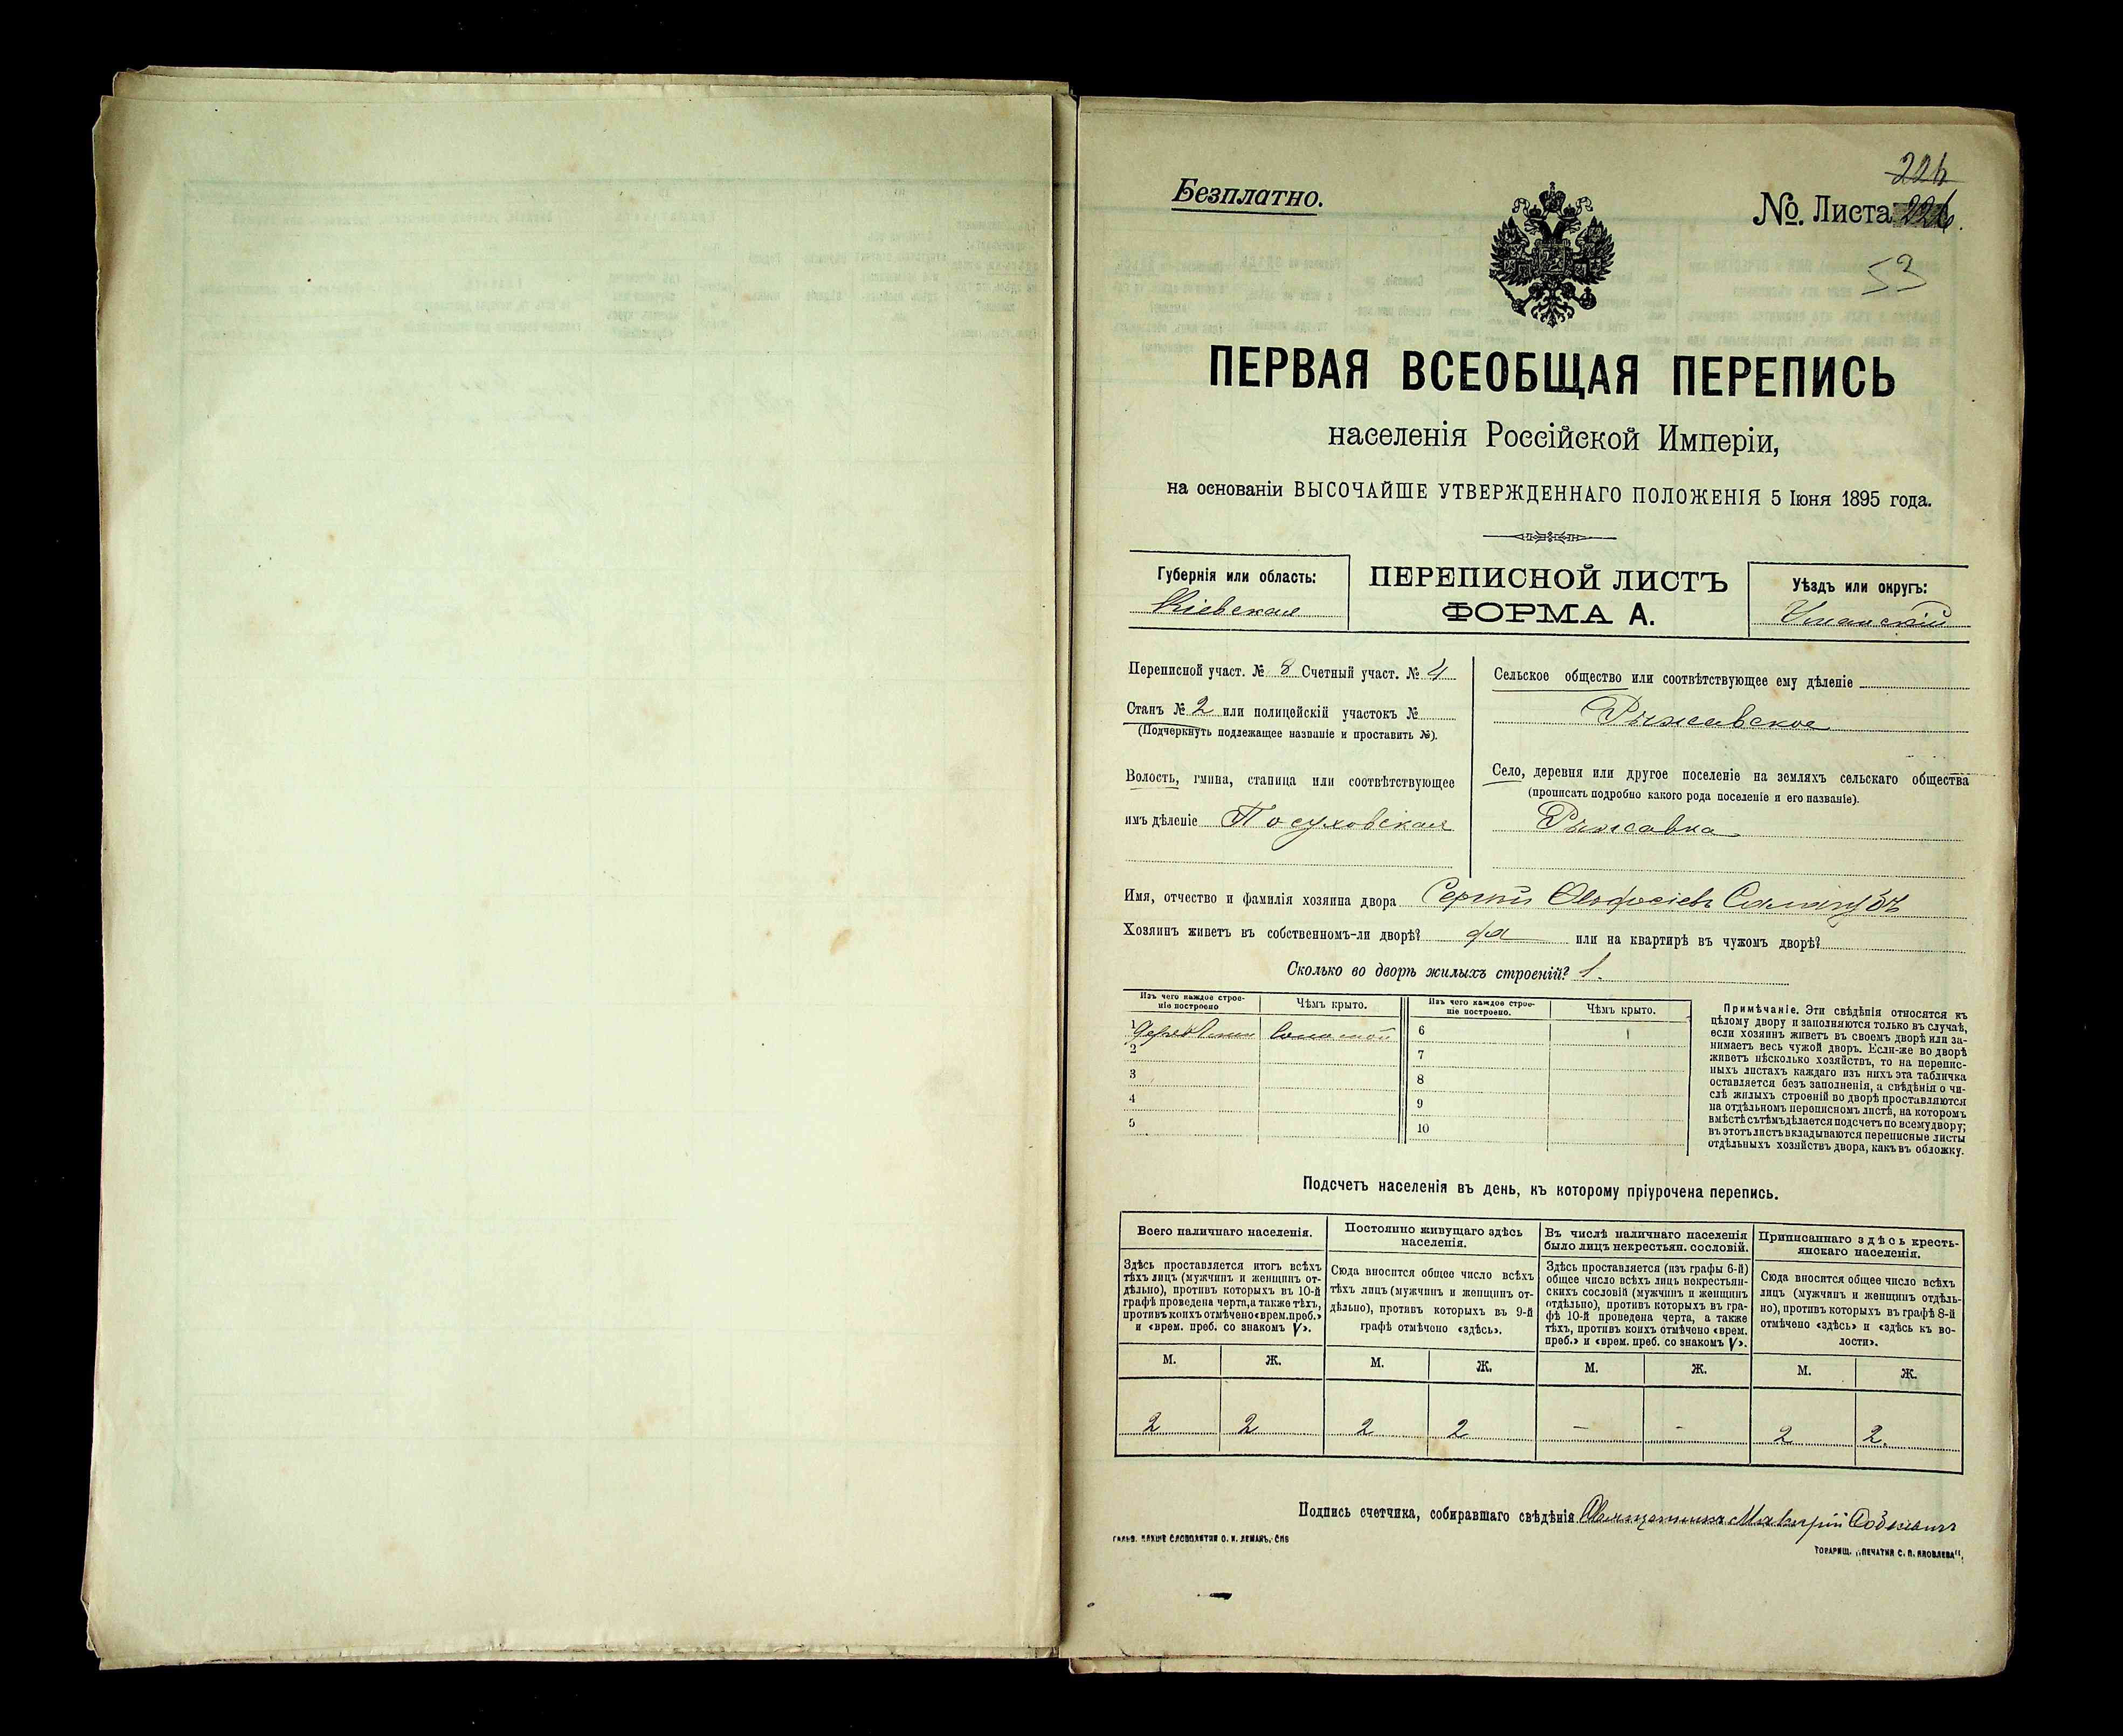 226
Безплатно.
№. Листа 226.
53
ПЕРВАЯ ВСЕОБЩАЯ ПЕРЕПИСЬ
населенія Россійской Имперіи,
на основаніи ВЫСОЧАЙШЕ УТВЕРЖДЕННАГО ПОЛОЖЕНІЯ 5 Іюня 1895 года.
Губернія или область:
Кіевская
ПЕРЕПИСНОЙ ЛИСТЪ
ФОРМА А.
Уѣздъ или округъ:
Уманскій
Переписной участ. № 8 Счетный участ. № 4
Станъ № 2 или полицейскій участокъ №
(Подчеркнуть подлежащее названіе и проставить №).
Волость, гмина, станица или соотвѣтствующее
имъ дѣленіе Посуховская
Сельское общество или соотвѣтствующее ему дѣленіе
Рыжавское
Село, деревня или другое поселеніе на земляхъ сельскаго общества
(прописать подробно какого рода поселеніе и его названіе).
Рыжавка
Имя, отчество и фамилія хозяина двора Сергій
Хозяинъ живетъ въ собственномъ-ли дворѣ? да или на квартирѣ въ чужомъ дворѣ?
Сколько во дворѣ жилыхъ строеній? 1.
Изъ чего каждое строе-
ніе построено
Чѣмъ крыто.
Изъ чего каждое строе-
ніе построено.
Чѣмъ крыто.
1 Соломой
2
3
4
5
6
7
8
9
10
Примѣчаніе. Эти свѣдѣнія относятся къ
цѣлому двору и заполняются только въ случаѣ,
если хозяинъ живетъ въ своемъ дворѣ или за-
нимаетъ весь чужой дворъ. Если-же во дворѣ
живетъ нѣсколько хозяйствъ, то на перепис-
ныхъ листахъ каждаго изъ нихъ эта табличка
оставляется безъ заполненія, а свѣдѣнія о чи-
слѣ жилыхъ строеній во дворѣ проставляются
на отдѣльномъ переписномъ листѣ, на которомъ
вмѣстѣ съ тѣмъ дѣлается подсчетъ по всему двору;
въ этотъ листъ вкладываются переписные листы
отдѣльныхъ хозяйствъ двора, какъ въ обложку.
Подсчетъ населенія въ день, къ которому пріурочена перепись.
Всего наличнаго населенія.
Здѣсь проставляется итогъ всѣхъ
тѣхъ лицъ (мужчинъ и женщинъ от-
дѣльно), противъ которыхъ въ 10-й
графѣ проведена черта, а также тѣхъ,
противъ коихъ отмѣчено «врем. преб.»
и «врем. преб. со знакомъ V».
Постоянно живущаго здѣсь
населенія.
Сюда вносится общее число всѣхъ
тѣхъ лицъ (мужчинъ и женщинъ от-
дѣльно), противъ которыхъ въ 9-й
графѣ отмѣчено «здѣсь».
Въ числѣ наличнаго населенія
было лицъ некрестьян. сословій.
Здѣсь проставляется (изъ графы 6-й)
общее число всѣхъ лицъ некрестьян-
скихъ сословій (мужчинъ и женщинъ
отдѣльно), противъ которыхъ въ гра-
фѣ 10-й проведена черта, а также
тѣхъ, противъ коихъ отмѣчено «врем.
преб.» и «врем. преб. со знакомъ V».
Приписаннаго здѣсь кресть-
янскаго населенія.
Сюда вносится общее число всѣхъ
лицъ (мужчинъ и женщинъ отдѣль-
но), противъ которыхъ въ графѣ 8-й
отмѣчено «здѣсь» и «здѣсь къ во-
лости».
М. Ж. М. Ж. М. Ж. М. Ж.
2 2 2 2 — - 2 2.
Подпись счетчика, собиравшаго свѣдѣнія Священникъ Макарій
ГАЛЬВ. КЛИШЕ СЛОВОЛИТНИ О. И. ЛЕМАНЪ, СПБ
ТОВАРИЩ. „ПЕЧАТНЯ С. П. ЯКОВЛЕВА“.